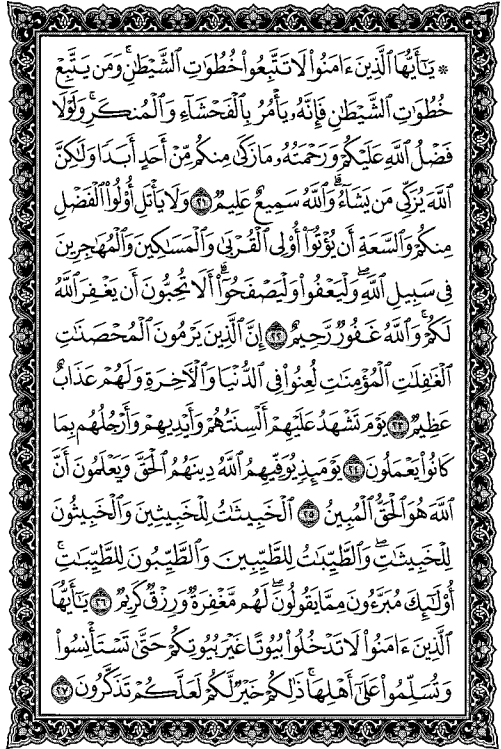 ۞ يَـٰٓأَيُّهَا ٱلَّذِينَ ءَامَنُوا۟ لَا تَتَّبِعُوا۟ خُطُوَٰتِ ٱلشَّيْطَـٰنِ ۚ وَمَن يَتَّبِعْ
خُطُوَٰتِ ٱلشَّيْطَـٰنِ فَإِنَّهُۥ يَأْمُرُ بِٱلْفَحْشَآءِ وَٱلْمُنكَرِ ۚ وَلَوْلَا
فَضْلُ ٱللَّهِ عَلَيْكُمْ وَرَحْمَتُهُۥ مَا زَكَىٰ مِنكُم مِّنْ أَحَدٍ أَبَدًا وَلَـٰكِنَّ
ٱللَّهَ يُزَكِّى مَن يَشَآءُ ۗ وَٱللَّهُ سَمِيعٌ عَلِيمٌ ٢١ وَلَا يَأْتَلِ أُو۟لُوا۟ ٱلْفَضْلِ
مِنكُمْ وَٱلسَّعَةِ أَن يُؤْتُوٓا۟ أُو۟لِى ٱلْقُرْبَىٰ وَٱلْمَسَـٰكِينَ وَٱلْمُهَـٰجِرِينَ
فِى سَبِيلِ ٱللَّهِ ۖ وَلْيَعْفُوا۟ وَلْيَصْفَحُوٓا۟ ۗ أَلَا تُحِبُّونَ أَن يَغْفِرَ ٱللَّهُ
لَكُمْ ۗ وَٱللَّهُ غَفُورٌ رَّحِيمٌ ٢٢ إِنَّ ٱلَّذِينَ يَرْمُونَ ٱلْمُحْصَنَـٰتِ
ٱلْغَـٰفِلَـٰتِ ٱلْمُؤْمِنَـٰتِ لُعِنُوا۟ فِى ٱلدُّنْيَا وَٱلْـَٔاخِرَةِ وَلَهُمْ عَذَابٌ
عَظِيمٌ ٢٣ يَوْمَ تَشْهَدُ عَلَيْهِمْ أَلْسِنَتُهُمْ وَأَيْدِيهِمْ وَأَرْجُلُهُم بِمَا
كَانُوا۟ يَعْمَلُونَ ٢٤ يَوْمَئِذٍ يُوَفِّيهِمُ ٱللَّهُ دِينَهُمُ ٱلْحَقَّ وَيَعْلَمُونَ أَنَّ
ٱللَّهَ هُوَ ٱلْحَقُّ ٱلْمُبِينُ ٢٥ ٱلْخَبِيثَـٰتُ لِلْخَبِيثِينَ وَٱلْخَبِيثُونَ
لِلْخَبِيثَـٰتِ ۖ وَٱلطَّيِّبَـٰتُ لِلطَّيِّبِينَ وَٱلطَّيِّبُونَ لِلطَّيِّبَـٰتِ ۚ
أُو۟لَـٰٓئِكَ مُبَرَّءُونَ مِمَّا يَقُولُونَ ۖ لَهُم مَّغْفِرَةٌ وَرِزْقٌ كَرِيمٌ ٢٦ يَـٰٓأَيُّهَا
ٱلَّذِينَ ءَامَنُوا۟ لَا تَدْخُلُوا۟ بُيُوتًا غَيْرَ بُيُوتِكُمْ حَتَّىٰ تَسْتَأْنِسُوا۟
وَتُسَلِّمُوا۟ عَلَىٰٓ أَهْلِهَا ۚ ذَٰلِكُمْ خَيْرٌ لَّكُمْ لَعَلَّكُمْ تَذَكَّرُونَ ٢٧